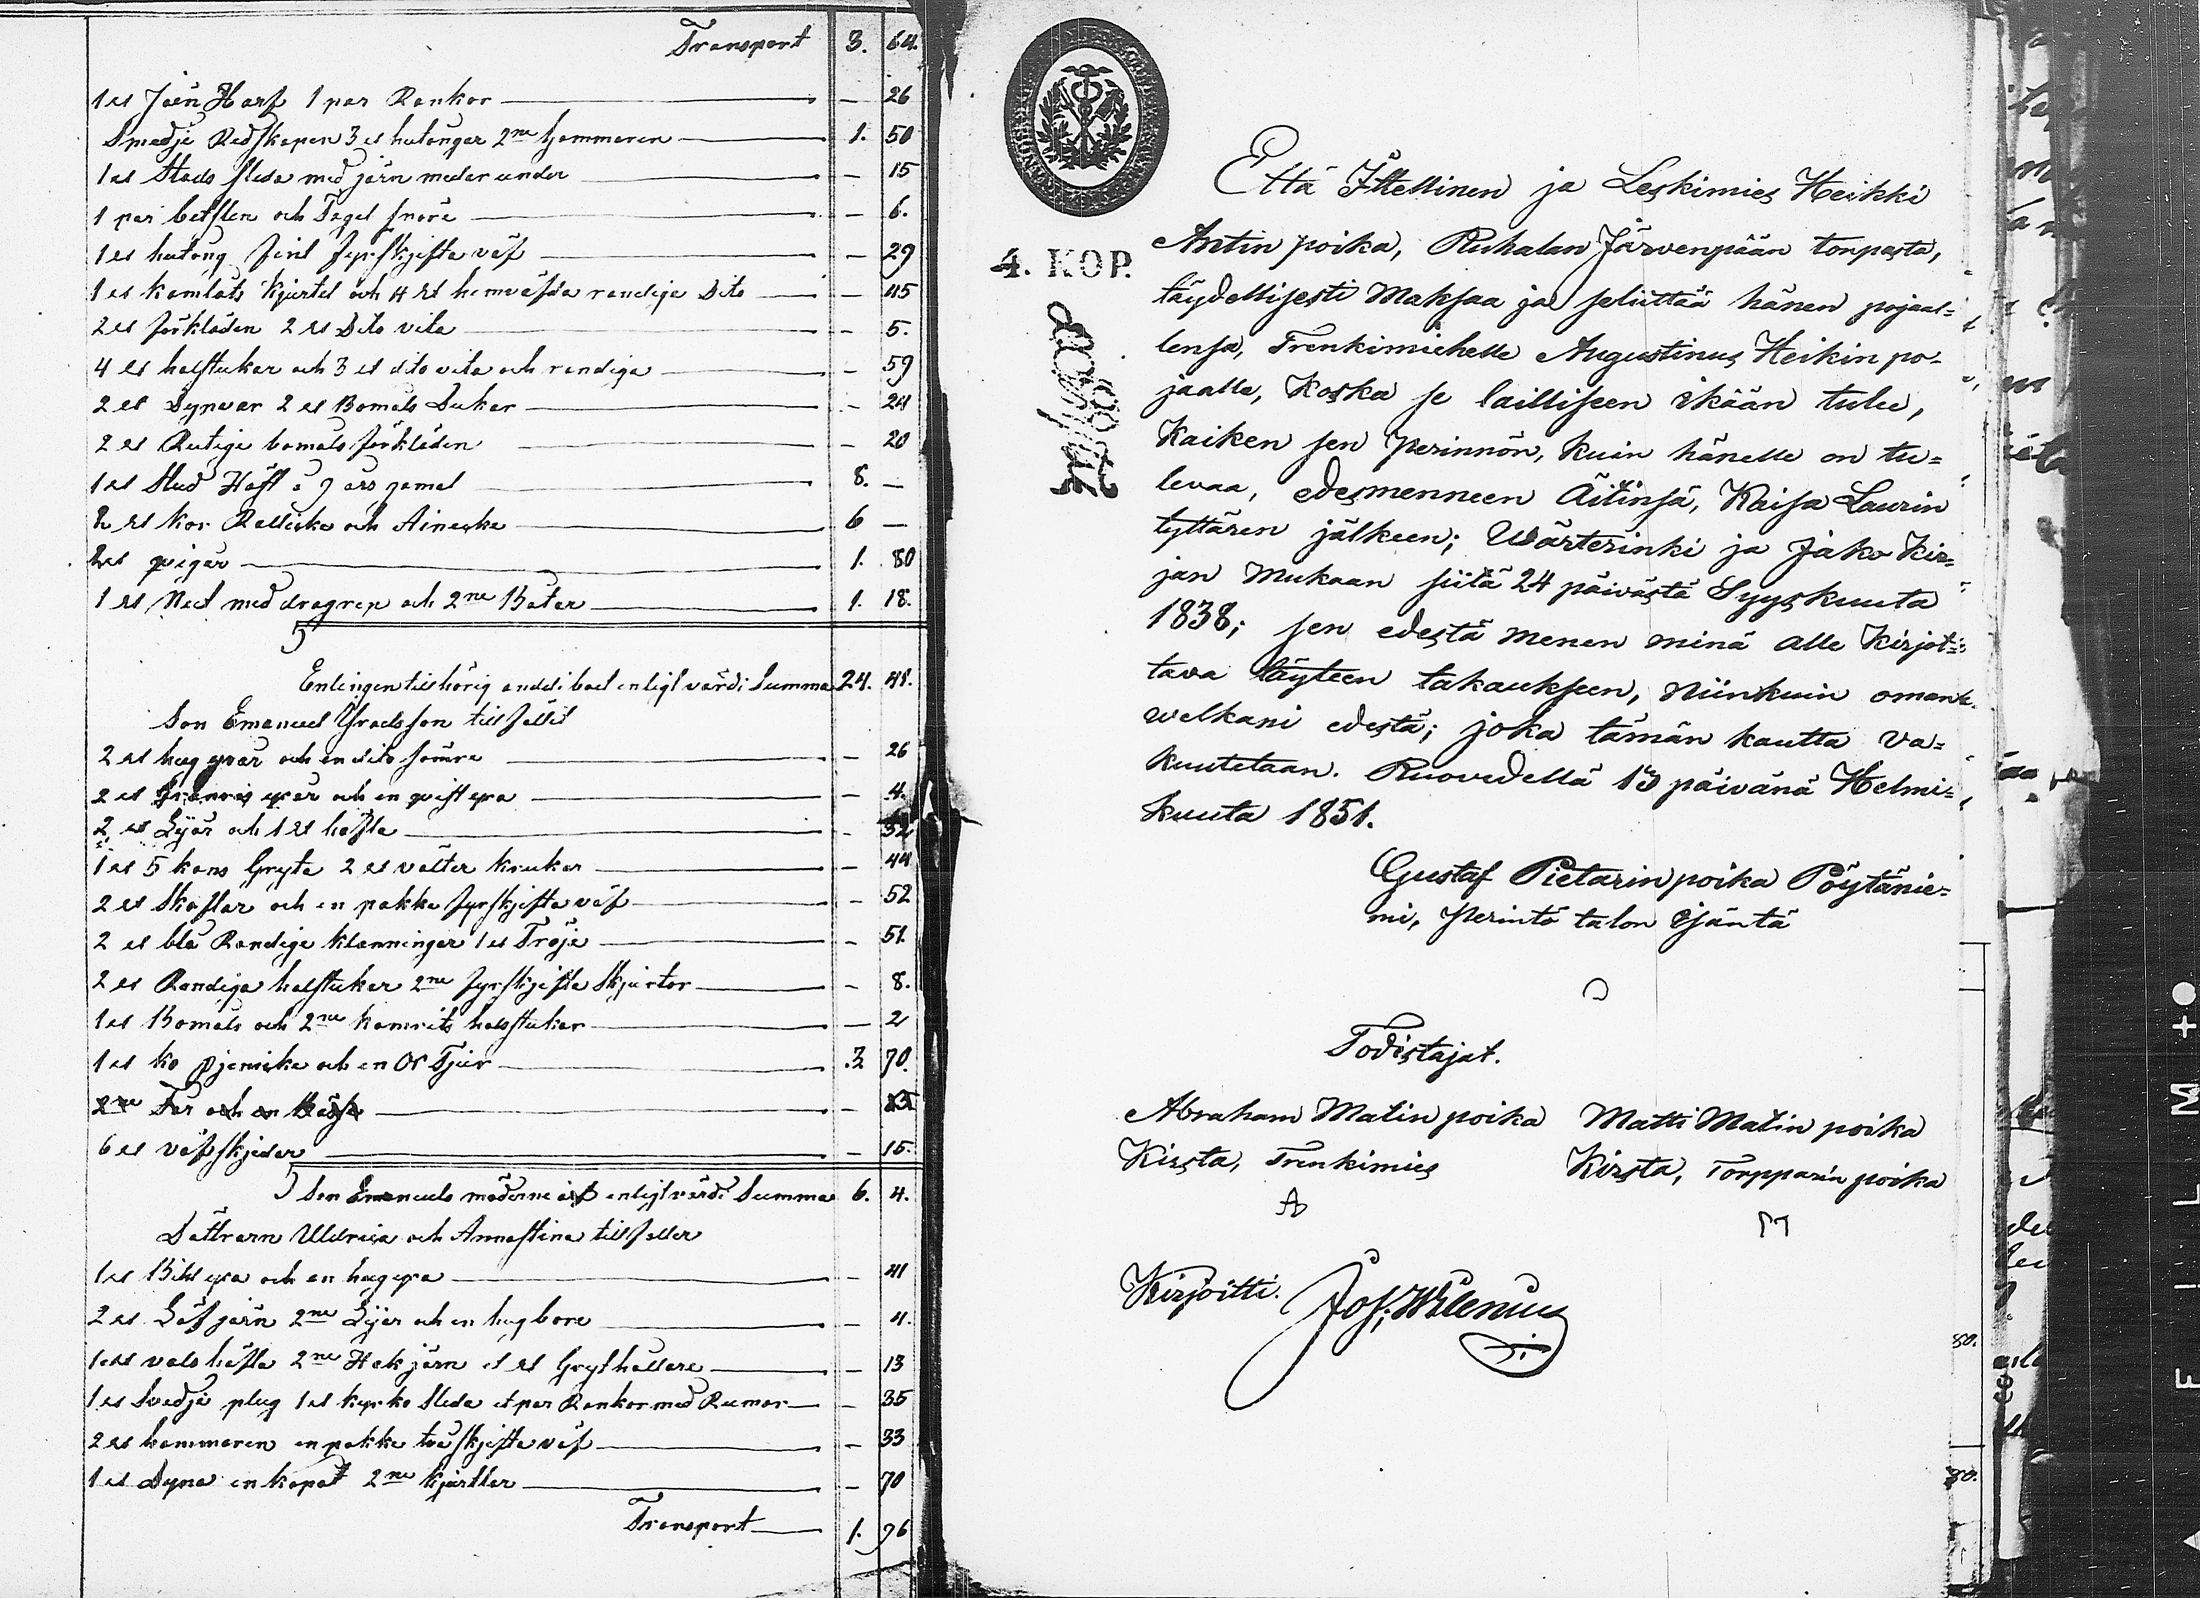 Transport 3. 64.
1 st Järn Harf 1 par Rankor — 26
Smedje Redskapen 3 st hutånger 2ne hammaren 1. 50
1 st Stads släda med järn medar under — 15
1 par betslen och Tagel snöre — 6.
1 st hutång fint fyrskjifta väf — 29
1 st kamlåts kjortel och 4 st hemväfda randiga Dito — 45
2 st förkläden 2 st Dito vita — 5.
4 st halstukar och 3 st dito vita och randiga — 59
2 st Dynvar 2 st Bomuls Dukar — 24
2 st Rutiga bomuls förkläden — 20
1 st Stud Häst 7 års gamal 8. —
2 st kor Relliska och Aineska 6 —
2 st qvigar 1. 80
1 st Not med dragrep och 2ne Båtar 1. 18.
Enlingen tillhörig andel i boet enligt värdi Summa 24. 48.
Son Emanuel tillfallit
2 st hug yxar och en dito sämre — 26
2 st yxar och en qvist yxa — 4.
2 st Lijar och 1 st — 32
1 st 5 kans Gryta 2 st välter krukar — 44
2 st Skaflar och en pakka fyrskjifta väf — 52
2 st blå Randiga klänningar 1 st Tröja — 51
2 st Randiga halstukar 2ne fyrskjifta Skjortor — 8.
1 st Bomuls och 2ne kamrits halstukar — 2
1 st ko och en Ox Tjur 3 70.
2ne Får och en
6 st väfskjedar — 15.
Son Emanuels möderne arf enligt värdi Summa 6. 4.
Döttrarn Uldrica och Annastina tillfaller
1 st Bihl yxa och en hug yxa — 41
2 st Löf järn 2ne Lijar och en hugbore — 11.
1 st 2ne Hak järn et st Grythållare — 13
1 st Svedje plug 1 st kyrko Släda et par Rankor med Rumor — 35
2 st hammaren en pakka tvåskjifta väf — 33
1 st Dyna en kapat 2ne kjortlar — 70
Transport 1. 96
4. KOP.
Että Itellinen ja Leskimies Heikki
Antin poika, Ruhalan Järvenpään torpasta,
täydellisesti Maksaa ja selittää hänen pojaal=
lensa, Trenkimiehelle Augustinus Heikin po=
jaalle, Koska se lailliseen ikään tulee,
Kaiken sen perinnön, kuin hänelle on tu=
levaa, edesmenneen Äitinsä, Kaisa Laurin
tyttären jälkeen; Wärterinki ja Jako Kir=
jan Mukaan siitä 24 päivästä Syyskuuta
1838; sen edestä menen minä alle Kirjot=
tava täyteen takaukseen, niinkuin oman
welkani edestä; joka tämän kautta va=
kuutetaan. Ruovedellä 13 päivänä Helmi=
kuuta 1851.
Gustaf Pietarin poika Pöytänie=
mi, Perintö talon isäntä
Todistajat.
Abraham Matin poika Matti Matin poika
Kirsta, Trenkimies Kirsta, Torpparin poika
A M
Kirjoitti. Jos. Wilenius
80.
80.
FILM